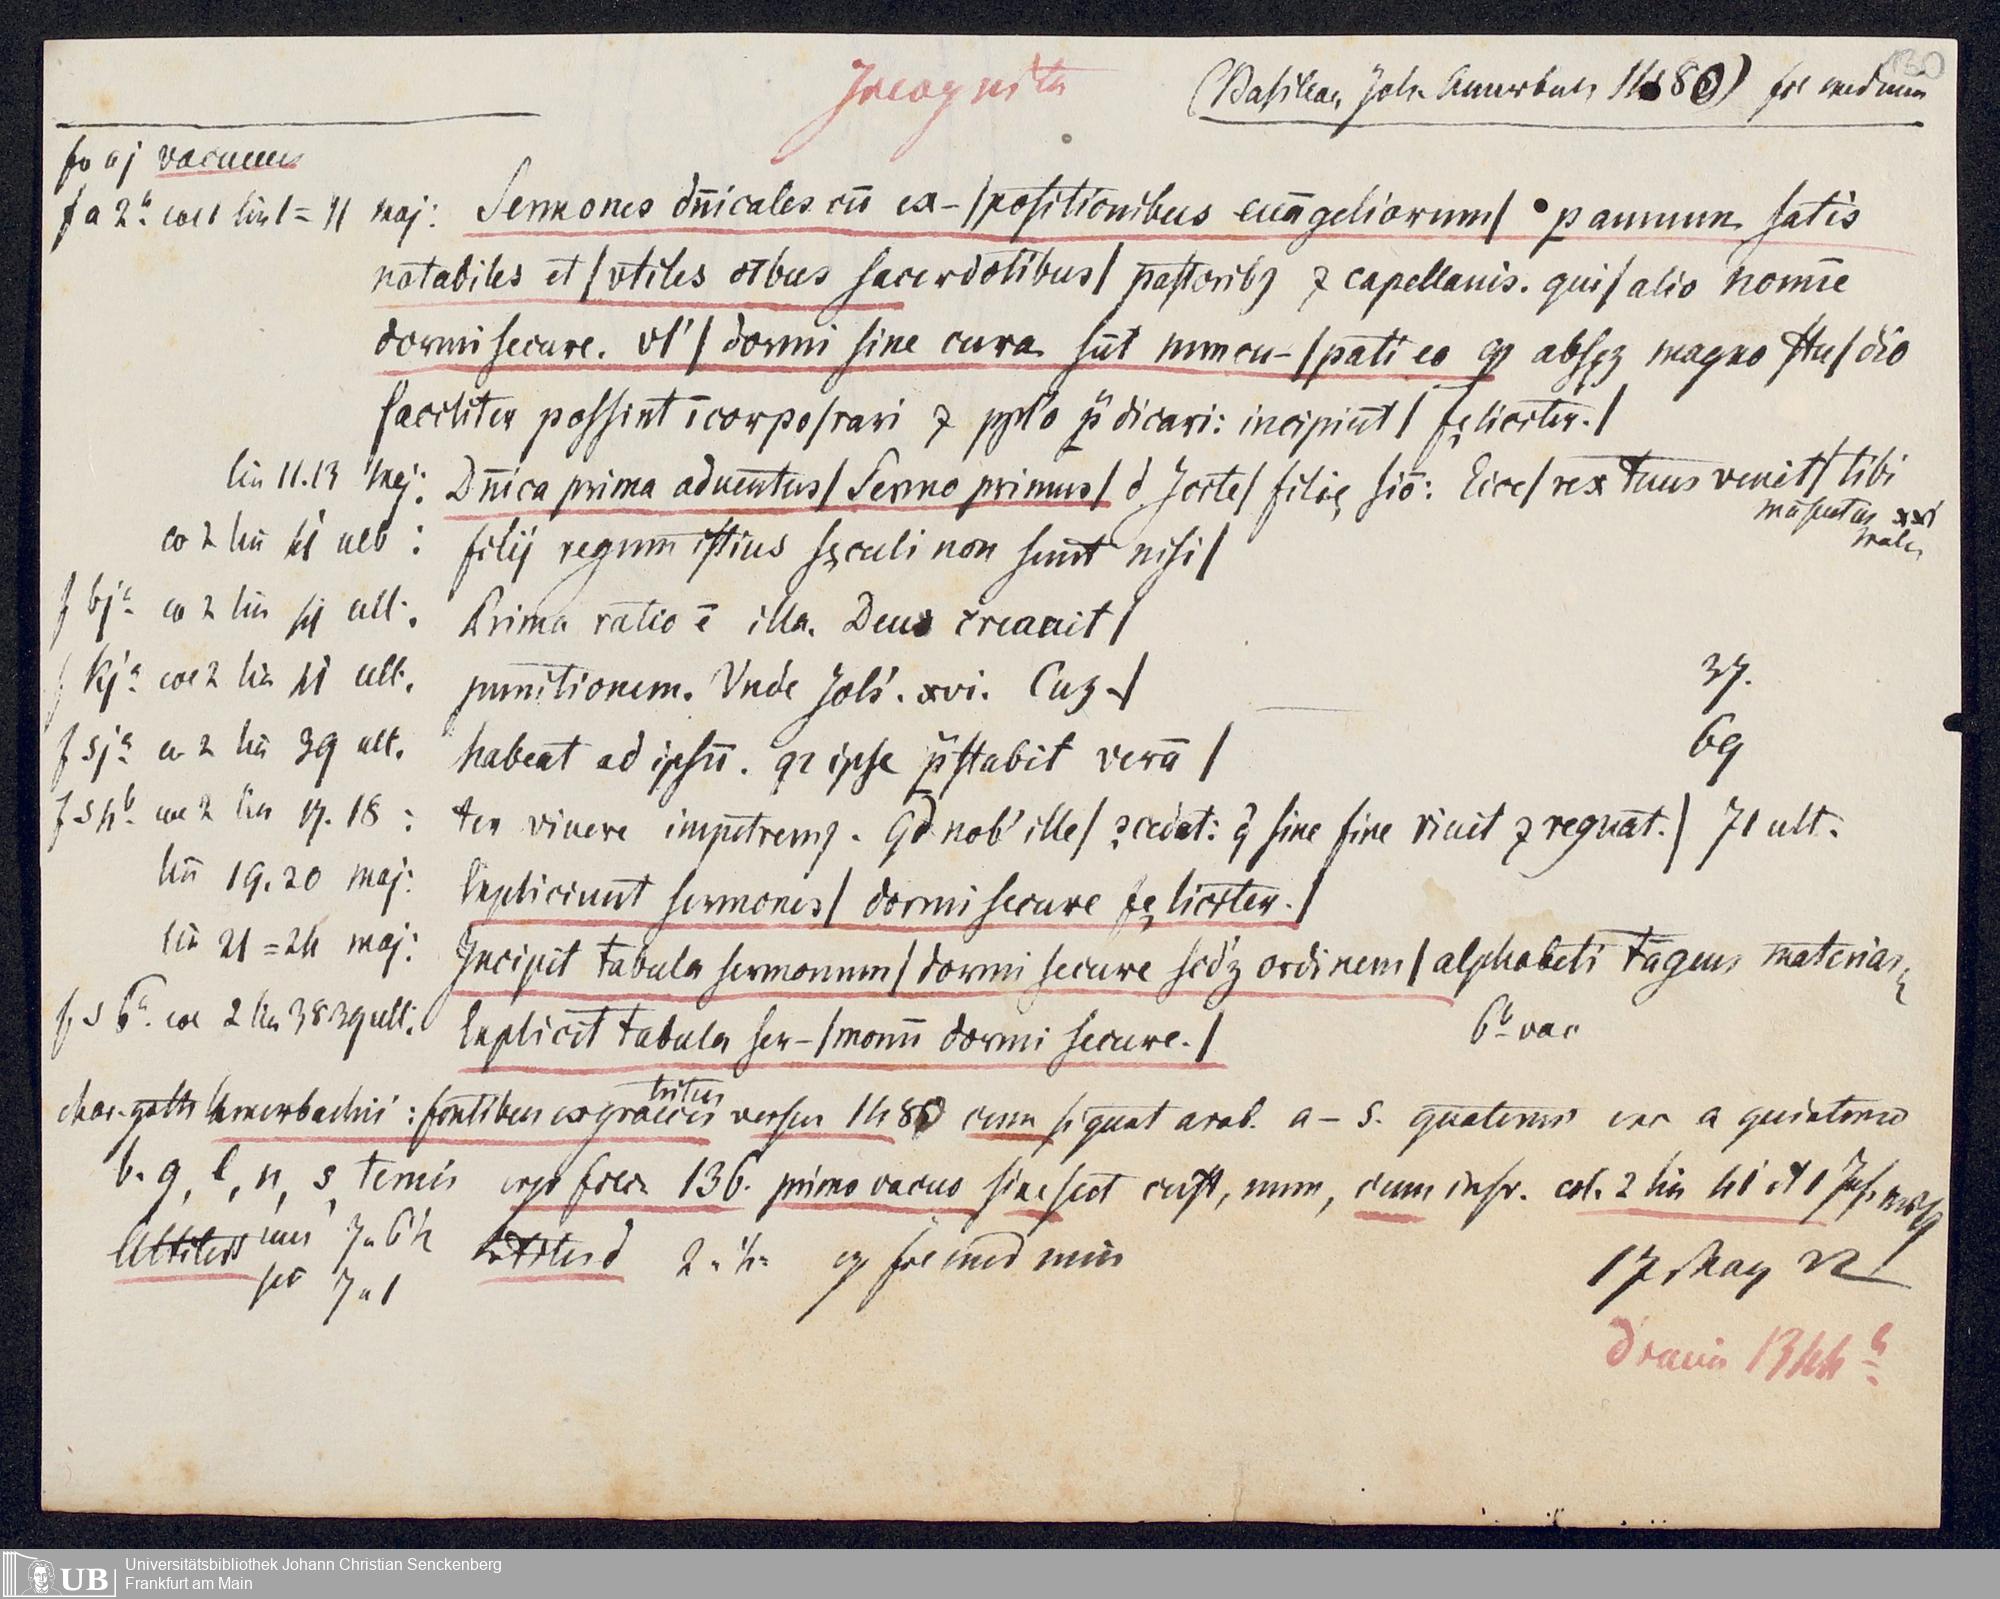 Incognita (Basileae Joh. Amerbach 1480) fol med min 130
fo aj vacuum
f a 2a col 1 lin 1=11 maj: Sermones dn̄icales cū ex-/positionibus euāgeliorum/ p annum satis
notabiles et/vtiles oībus sacerdotibus/ pastoribꝫ ⁊ capellanis. qui/alio nomīe
dormi secure. vl'/dormi sine cura sūt nuncu-/pati eo qꝫ absqꝫ magno stu/dio
faciliter possint īcorpo/rari ⁊ pplo p̄dicari: incipiūt/ fęliciter./
lin 11.13 maj: Dn̄ica prima aduentus/Sermo primus/ d Icite/ filię siō: Ecce/rex tuus venit/tibi
mansuetus xxi
co 2 lin 41 ult: filij regum istius sęculi non sunt nisi/
f bja co 2 lin 41 ult. Prima ratio ē illa. Deus creauit/
f kja col 2 lin 41 ult. punitionem. Vnde Job. xvi. Cuꝫ-/ 37.
f sja co 2 lin 39 ult. habeat ad ipsū. qꝛ ipse p̄stabit verā/ 69
f s4b col 2 lin 17.18: ter viuere impetremꝰ. Qd nob' ille/ ꝯcedat: q̄ sine fine viuit ⁊ regnat./ 71 ult.
lin 19.20 maj: Expliciunt sermones/ dormi secure fęliciter./
lin 21=24 maj: Incipit tabula sermonum/dormi secure scdꝫ ordinem/alphabeti tāgens materias
f s 6a. col 2 lin 38 39 ult. Explicit tabula ser-/monū dormi secure./ 6b vac
char. goth Amerbachii: fontibus ex gracilis tritus versus 1480 cum signat arab. a-s. quaternis exc a quinterno
b. g, l, n, s ternis ergo folior 136. primo vacuo sine scot cust, num, cum inscr. col. 2 lin 41
7a64 2.4. fol med min
7a1 17 May 22